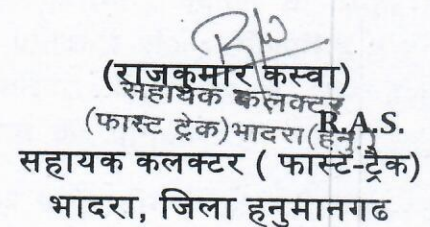 (राजकुमार कस्वा)
सहायक कलक्टर
(फास्ट ट्रेक)भादरा(हनु.)
R.A.S.
सहायक कलक्टर ( फास्ट-ट्रैक)
भादरा, जिला हनुमानगढ